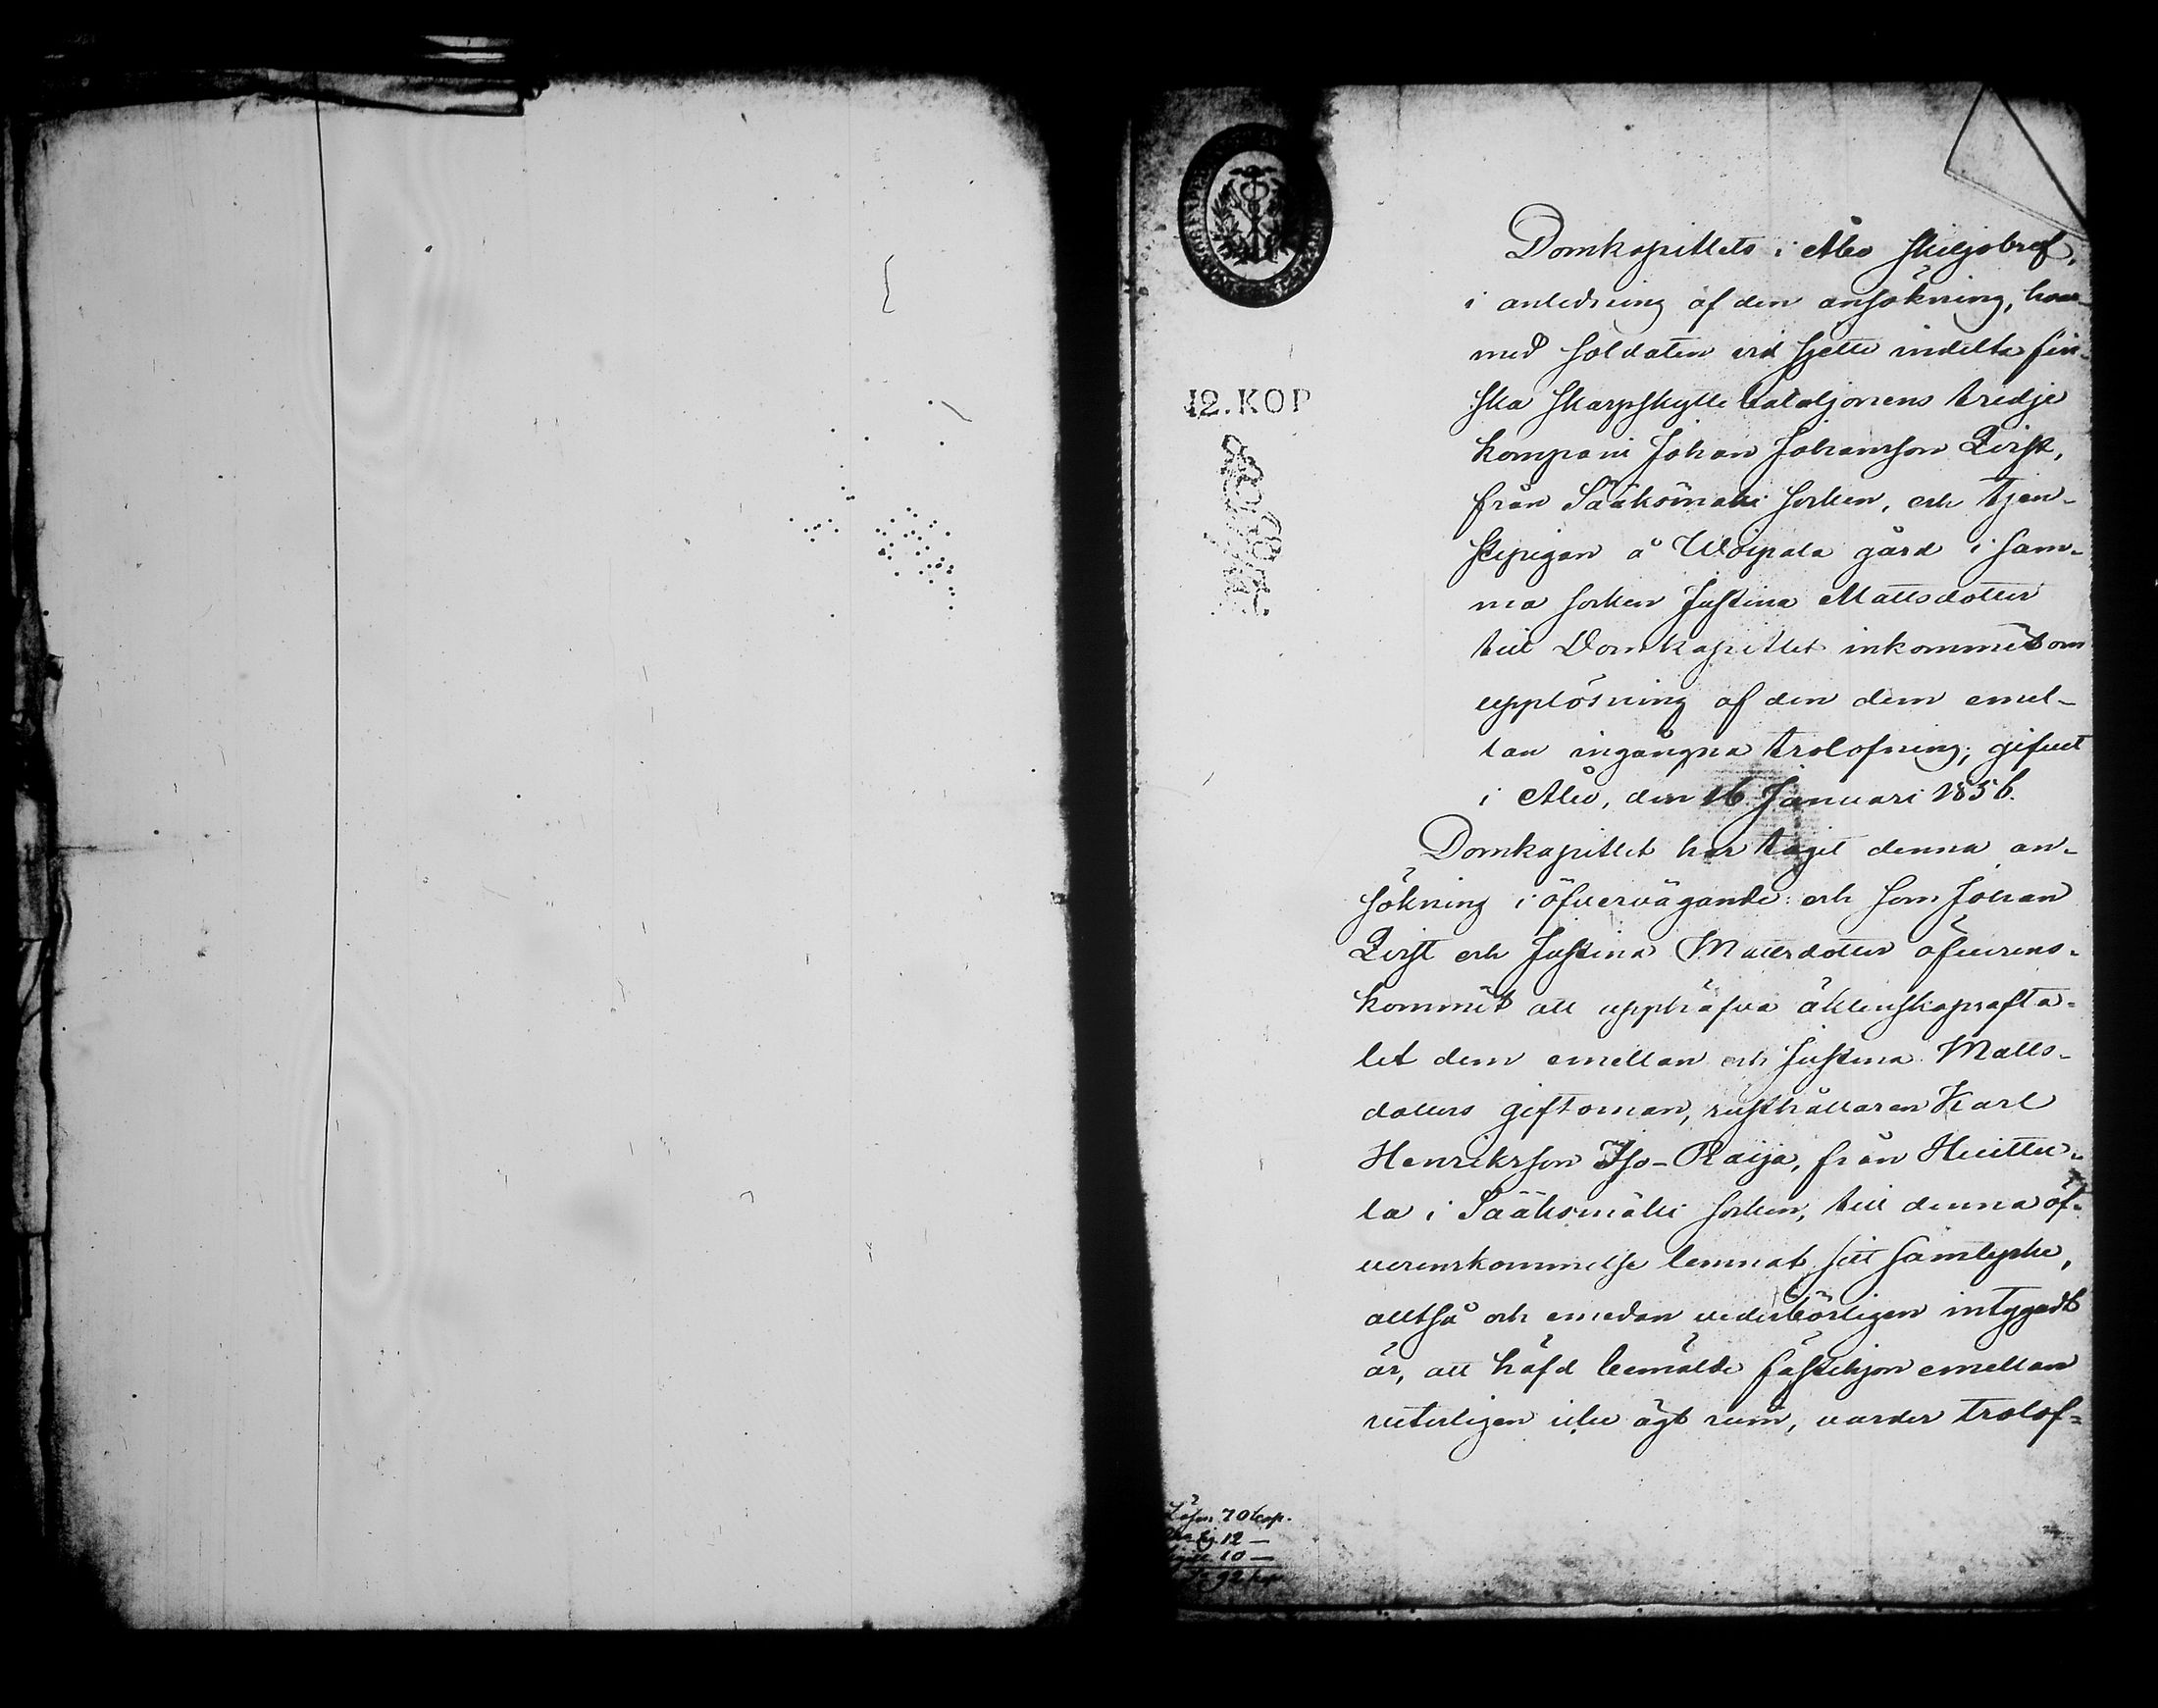 12.KOP
Domkapitlets i Åbo skiljobref,
i anledning af den ansökning, hvar-
med soldaten vid sjette indelta fin-
ska skarpskytte bataljonens tredje
kompani Johan Johansson Qvist,
från Sääksmäki socken, och tjen-
stepigan å Woipala gård i sam-
ma socken Justina Mattsdotter
till Domkapitlet inkommit om
upplösning af den dem emel-
lan ingångna trolofning; gifvet
i Åbo, den 16 Januari 1856.
Domkapitlet har tagit denna an-
sökning i öfvervägande: och som Johan
Qvist och Justina Mattsdotter öfverens-
kommit att upphäfva äktenskapsafta-
let dem emellan och Justina Matts-
dotters giftoman, rusthållaren Karl
Henriksson Iso-Raija, från Huittu-
la i Sääksmäki socken, till denna öf-
verenskommelse lemnat sitt samtycke,
alltså och emedan vederbörligen intygadt
är, att häfd bemälde fästehjon emellan
veterligen icke ägt rum, varder trolof-
Lösen 70 kop.
12 —
10 —
92 kop.